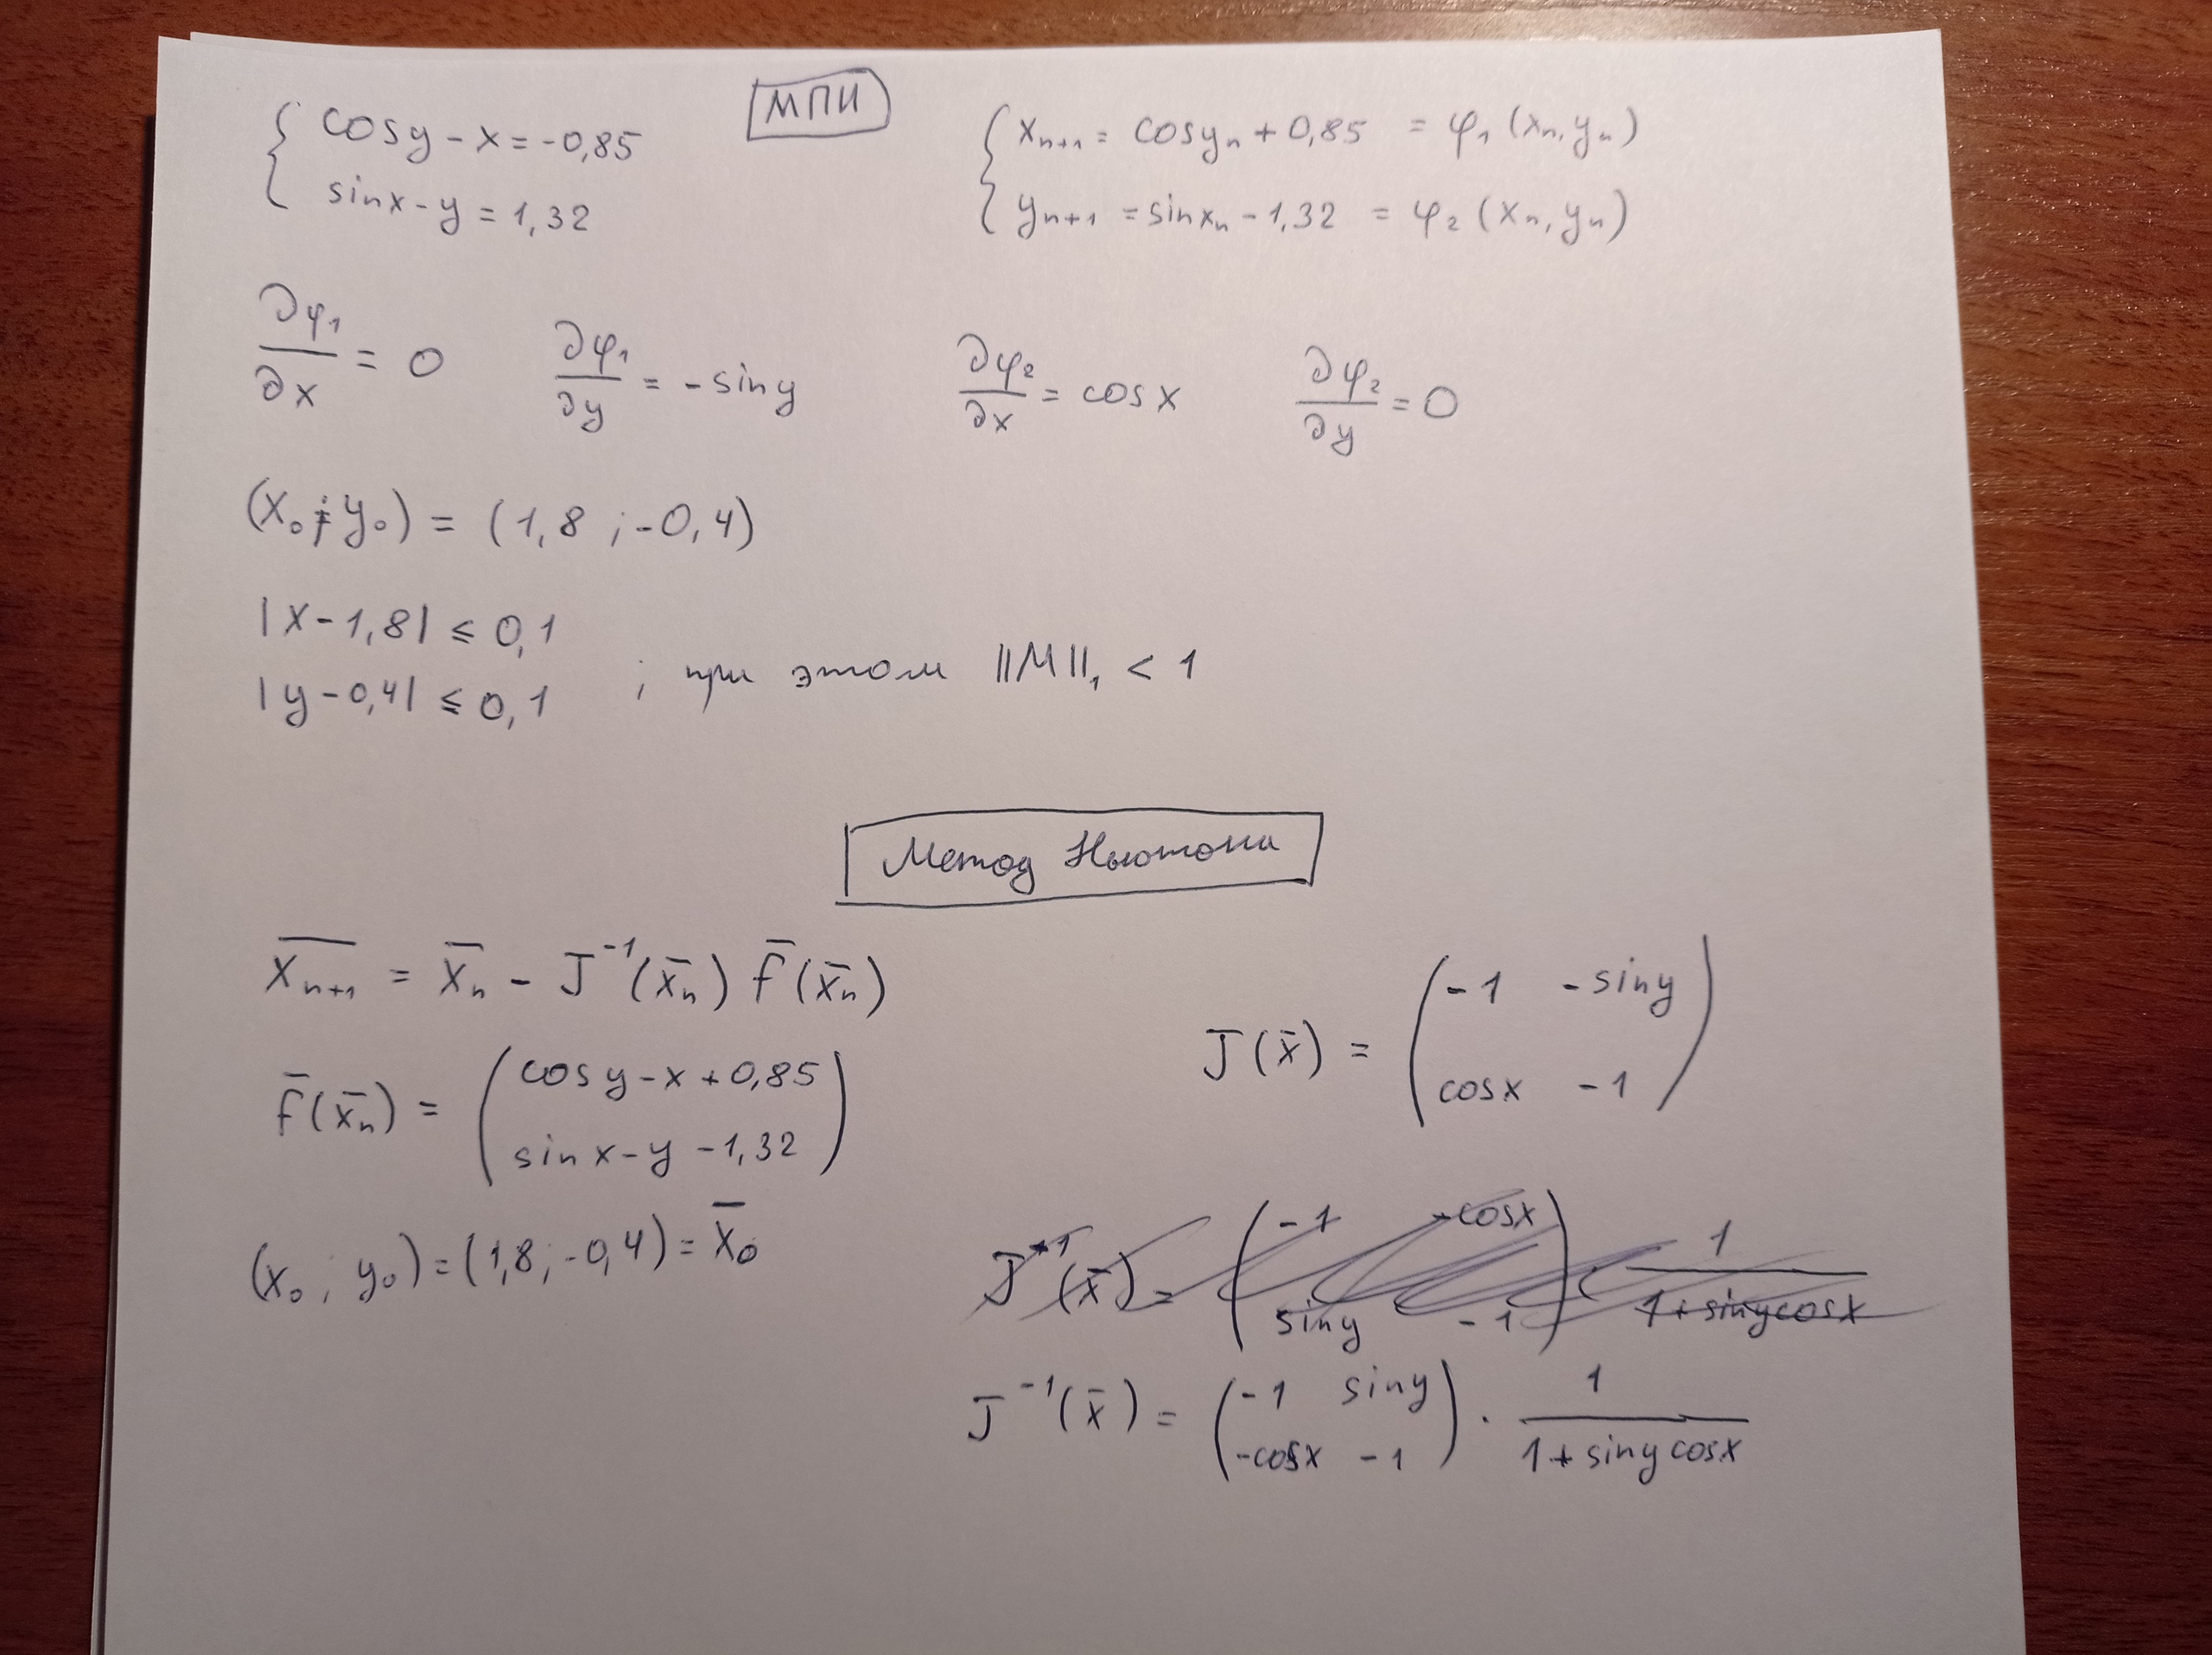 МПИ
{ cosy - x = -0,85
sinx - y = 1,32
{ xₙ₊₁ = cosyₙ + 0,85 = φ₁ (xₙ, yₙ)
yₙ₊₁ = sinxₙ - 1,32 = φ₂ (xₙ, yₙ)
∂φ₁/∂x = 0 ∂φ₁/∂y = -siny ∂φ₂/∂x = cosx ∂φ₂/∂y = 0
(x₀; y₀) = (1,8 ; -0,4)
|x - 1,8| ≤ 0,1
|y - 0,4| ≤ 0,1 ; при этом ||M||₁ < 1
Метод Ньютона
x̅ₙ₊₁ = x̅ₙ - J⁻¹(x̅ₙ) f̅(x̅ₙ)
J(x̅) = ( -1 -siny
cosx -1 )
f̅(x̅ₙ) = ( cosy - x + 0,85
sinx - y - 1,32 )
(x₀; y₀) = (1,8; -0,4) = x̅₀
J⁻¹(x̅) = ( -1 siny
-cosx -1 ) · 1/(1 + siny cosx)